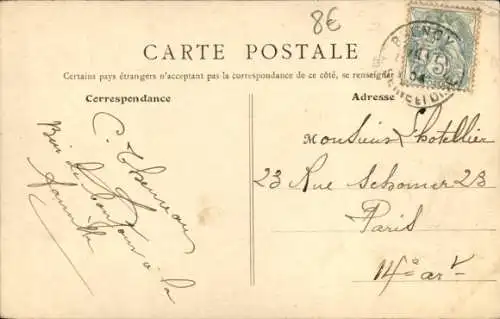 8€
CARTE POSTALE
Certains pays étrangers n'acceptant pas la correspondance de ce côté, se renseigner
Correspondance
Adresse
C.
Bien le bonjour à la
famille
Monsieur Lhotellier
23 Rue Schomer 23
Paris
14e arr
5
SEINE ET OISE